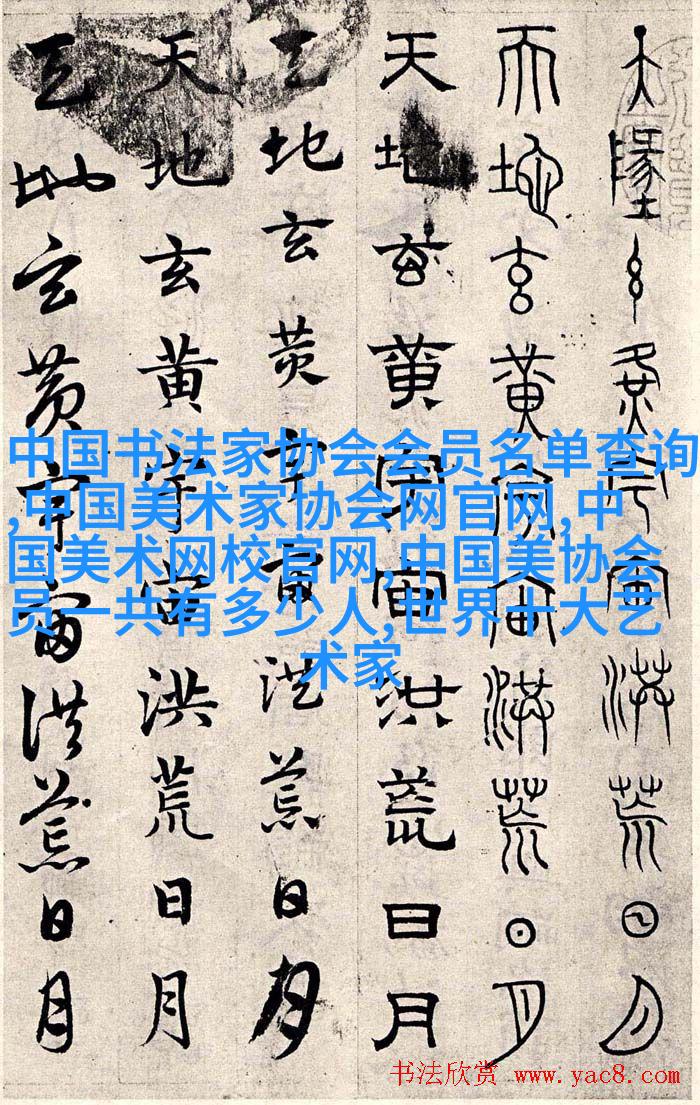 天地玄黄宇宙洪荒日月
天地玄黄宇宙洪荒日月
天地玄黄宇宙洪荒日月
天地玄黄宇宙洪荒日月
天地玄黄宇宙洪荒日月
天地玄黄宇宙洪荒日月
中国书法家协会会员名单查询
,中国美术家协会网官网,中
国美术网校官网,中国美协会
员一共有多少人,世界十大艺
术家
书法欣赏 www.yac8.com